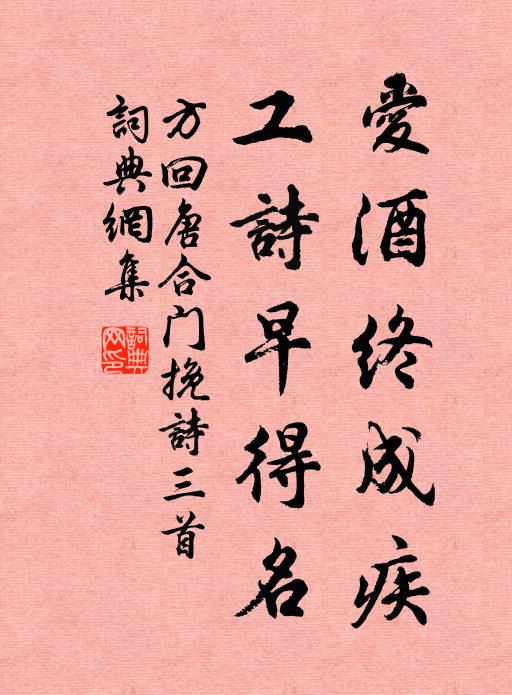 愛酒終成疾
工詩早得名
方回唐合门挽詩三首
詞典網集
詞典網印